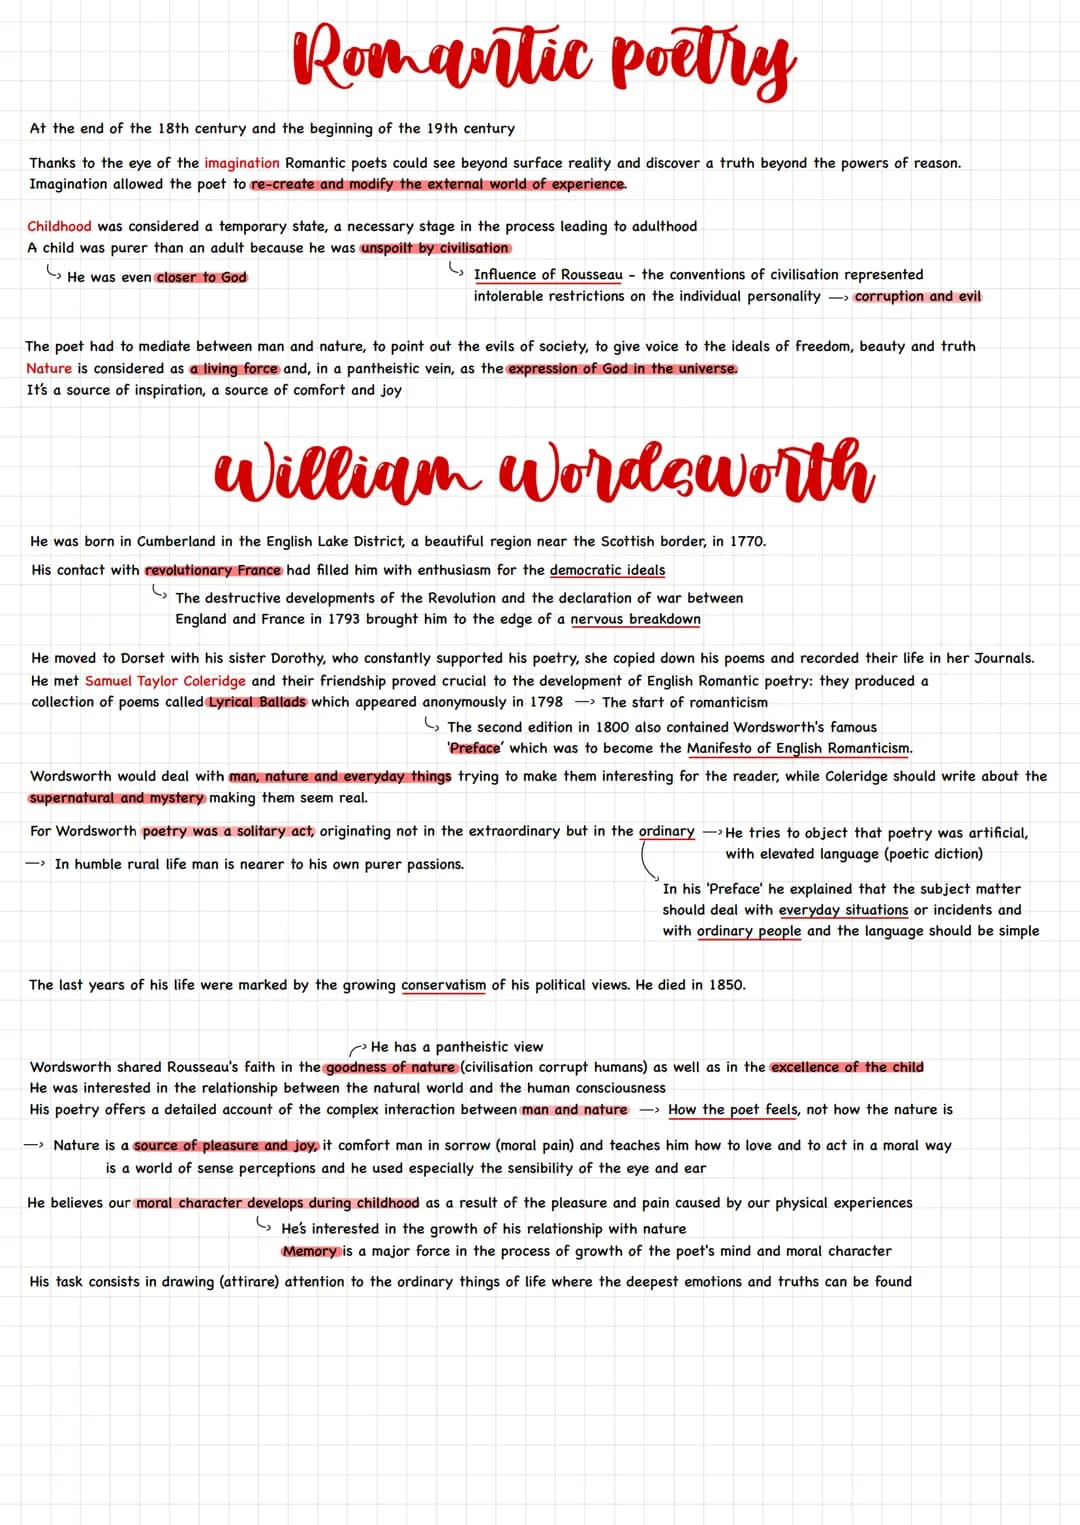 Romantic poetry
At the end of the 18th century and the beginning of the 19th century
Thanks to the eye of the imagination Romantic poets could see beyond surface reality and discover a truth beyond the powers of reason.
Imagination allowed the poet to re-create and modify the external world of experience.
Childhood was considered a temporary state, a necessary stage in the process leading to adulthood
A child was purer than an adult because he was unspoilt by civilisation
He was even closer to God
Influence of Rousseau - the conventions of civilisation represented
intolerable restrictions on the individual personality —> corruption and evil
The poet had to mediate between man and nature, to point out the evils of society, to give voice to the ideals of freedom, beauty and truth
Nature is considered as a living force and, in a pantheistic vein, as the expression of God in the universe.
It's a source of inspiration, a source of comfort and joy
William Wordsworth
He was born in Cumberland in the English Lake District, a beautiful region near the Scottish border, in 1770.
His contact with revolutionary France had filled him with enthusiasm for the democratic ideals
The destructive developments of the Revolution and the declaration of war between
England and France in 1793 brought him to the edge of a nervous breakdown
He moved to Dorset with his sister Dorothy, who constantly supported his poetry, she copied down his poems and recorded their life in her Journals.
He met Samuel Taylor Coleridge and their friendship proved crucial to the development of English Romantic poetry: they produced a
collection of poems called Lyrical Ballads which appeared anonymously in 1798 —> The start of romanticism
The second edition in 1800 also contained Wordsworth's famous
'Preface' which was to become the Manifesto of English Romanticism.
Wordsworth would deal with man, nature and everyday things trying to make them interesting for the reader, while Coleridge should write about the
supernatural and mystery making them seem real.
For Wordsworth poetry was a solitary act, originating not in the extraordinary but in the ordinary —> He tries to object that poetry was artificial,
with elevated language (poetic diction)
—> In humble rural life man is nearer to his own purer passions.
In his 'Preface' he explained that the subject matter
should deal with everyday situations or incidents and
with ordinary people and the language should be simple
The last years of his life were marked by the growing conservatism of his political views. He died in 1850.
He has a pantheistic view
Wordsworth shared Rousseau's faith in the goodness of nature (civilisation corrupt humans) as well as in the excellence of the child
He was interested in the relationship between the natural world and the human consciousness
His poetry offers a detailed account of the complex interaction between man and nature —> How the poet feels, not how the nature is
—> Nature is a source of pleasure and joy, it comfort man in sorrow (moral pain) and teaches him how to love and to act in a moral way
is a world of sense perceptions and he used especially the sensibility of the eye and ear
He believes our moral character develops during childhood as a result of the pleasure and pain caused by our physical experiences
He's interested in the growth of his relationship with nature
Memory is a major force in the process of growth of the poet's mind and moral character
His task consists in drawing (attirare) attention to the ordinary things of life where the deepest emotions and truths can be found